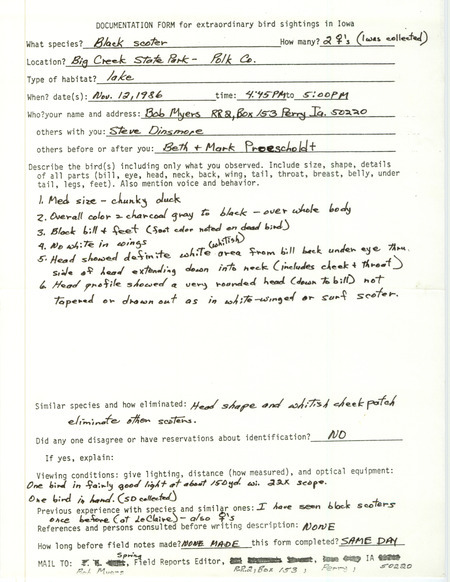 DOCUMENTATION FORM for extraordinary bird sightings in Iowa
What species? Black scoter How many? 2 ♀'s (1 was collected)
Location? Big Creek State Park - Polk Co.
Type of habitat? lake
When? date(s): Nov. 12, 1986 time: 4:45PM to 5:00PM
Who? your name and address: Bob Myers RR2, Box 153 Perry Ia. 50220
others with you: Steve Dinsmore
others before or after you: Beth & Mark Proescholdt
Describe the bird(s) including only what you observed. Include size, shape, details
of all parts (bill, eye, head, neck, back, wing, tail, throat, breast, belly, under
tail, legs, feet). Also mention voice and behavior.
1. Med size - chunky duck
2. Overall color = charcoal gray to black - over whole body
3. Black bill & feet (foot color noted on dead bird)
4. No white in wings
5. Head showed definite white (whitish) area from bill back under eye thru
side of head extending down into neck (includes cheek & throat)
6. Head profile showed a very rounded head (down to bill) not
tapered or drawn out as in white-winged or surf scoter.
Similar species and how eliminated: Head shape and whitish cheek patch
eliminate other scoters.
Did any one disagree or have reservations about identification? NO
If yes, explain:
Viewing conditions: give lighting, distance (how measured), and optical equipment:
One bird in fairly good light at about 150 yd. wi. 22X scope.
One bird in hand. (SD collected)
Previous experience with species and similar ones: I have seen black scoters
once before (at LeClaire) - also ♀'s
References and persons consulted before writing description: NONE
How long before field notes made? NONE MADE this form completed? SAME DAY
Spring
MAIL TO: Field Reports Editor, IA 50220
Bob Myers RR2, Box 153, Perry,